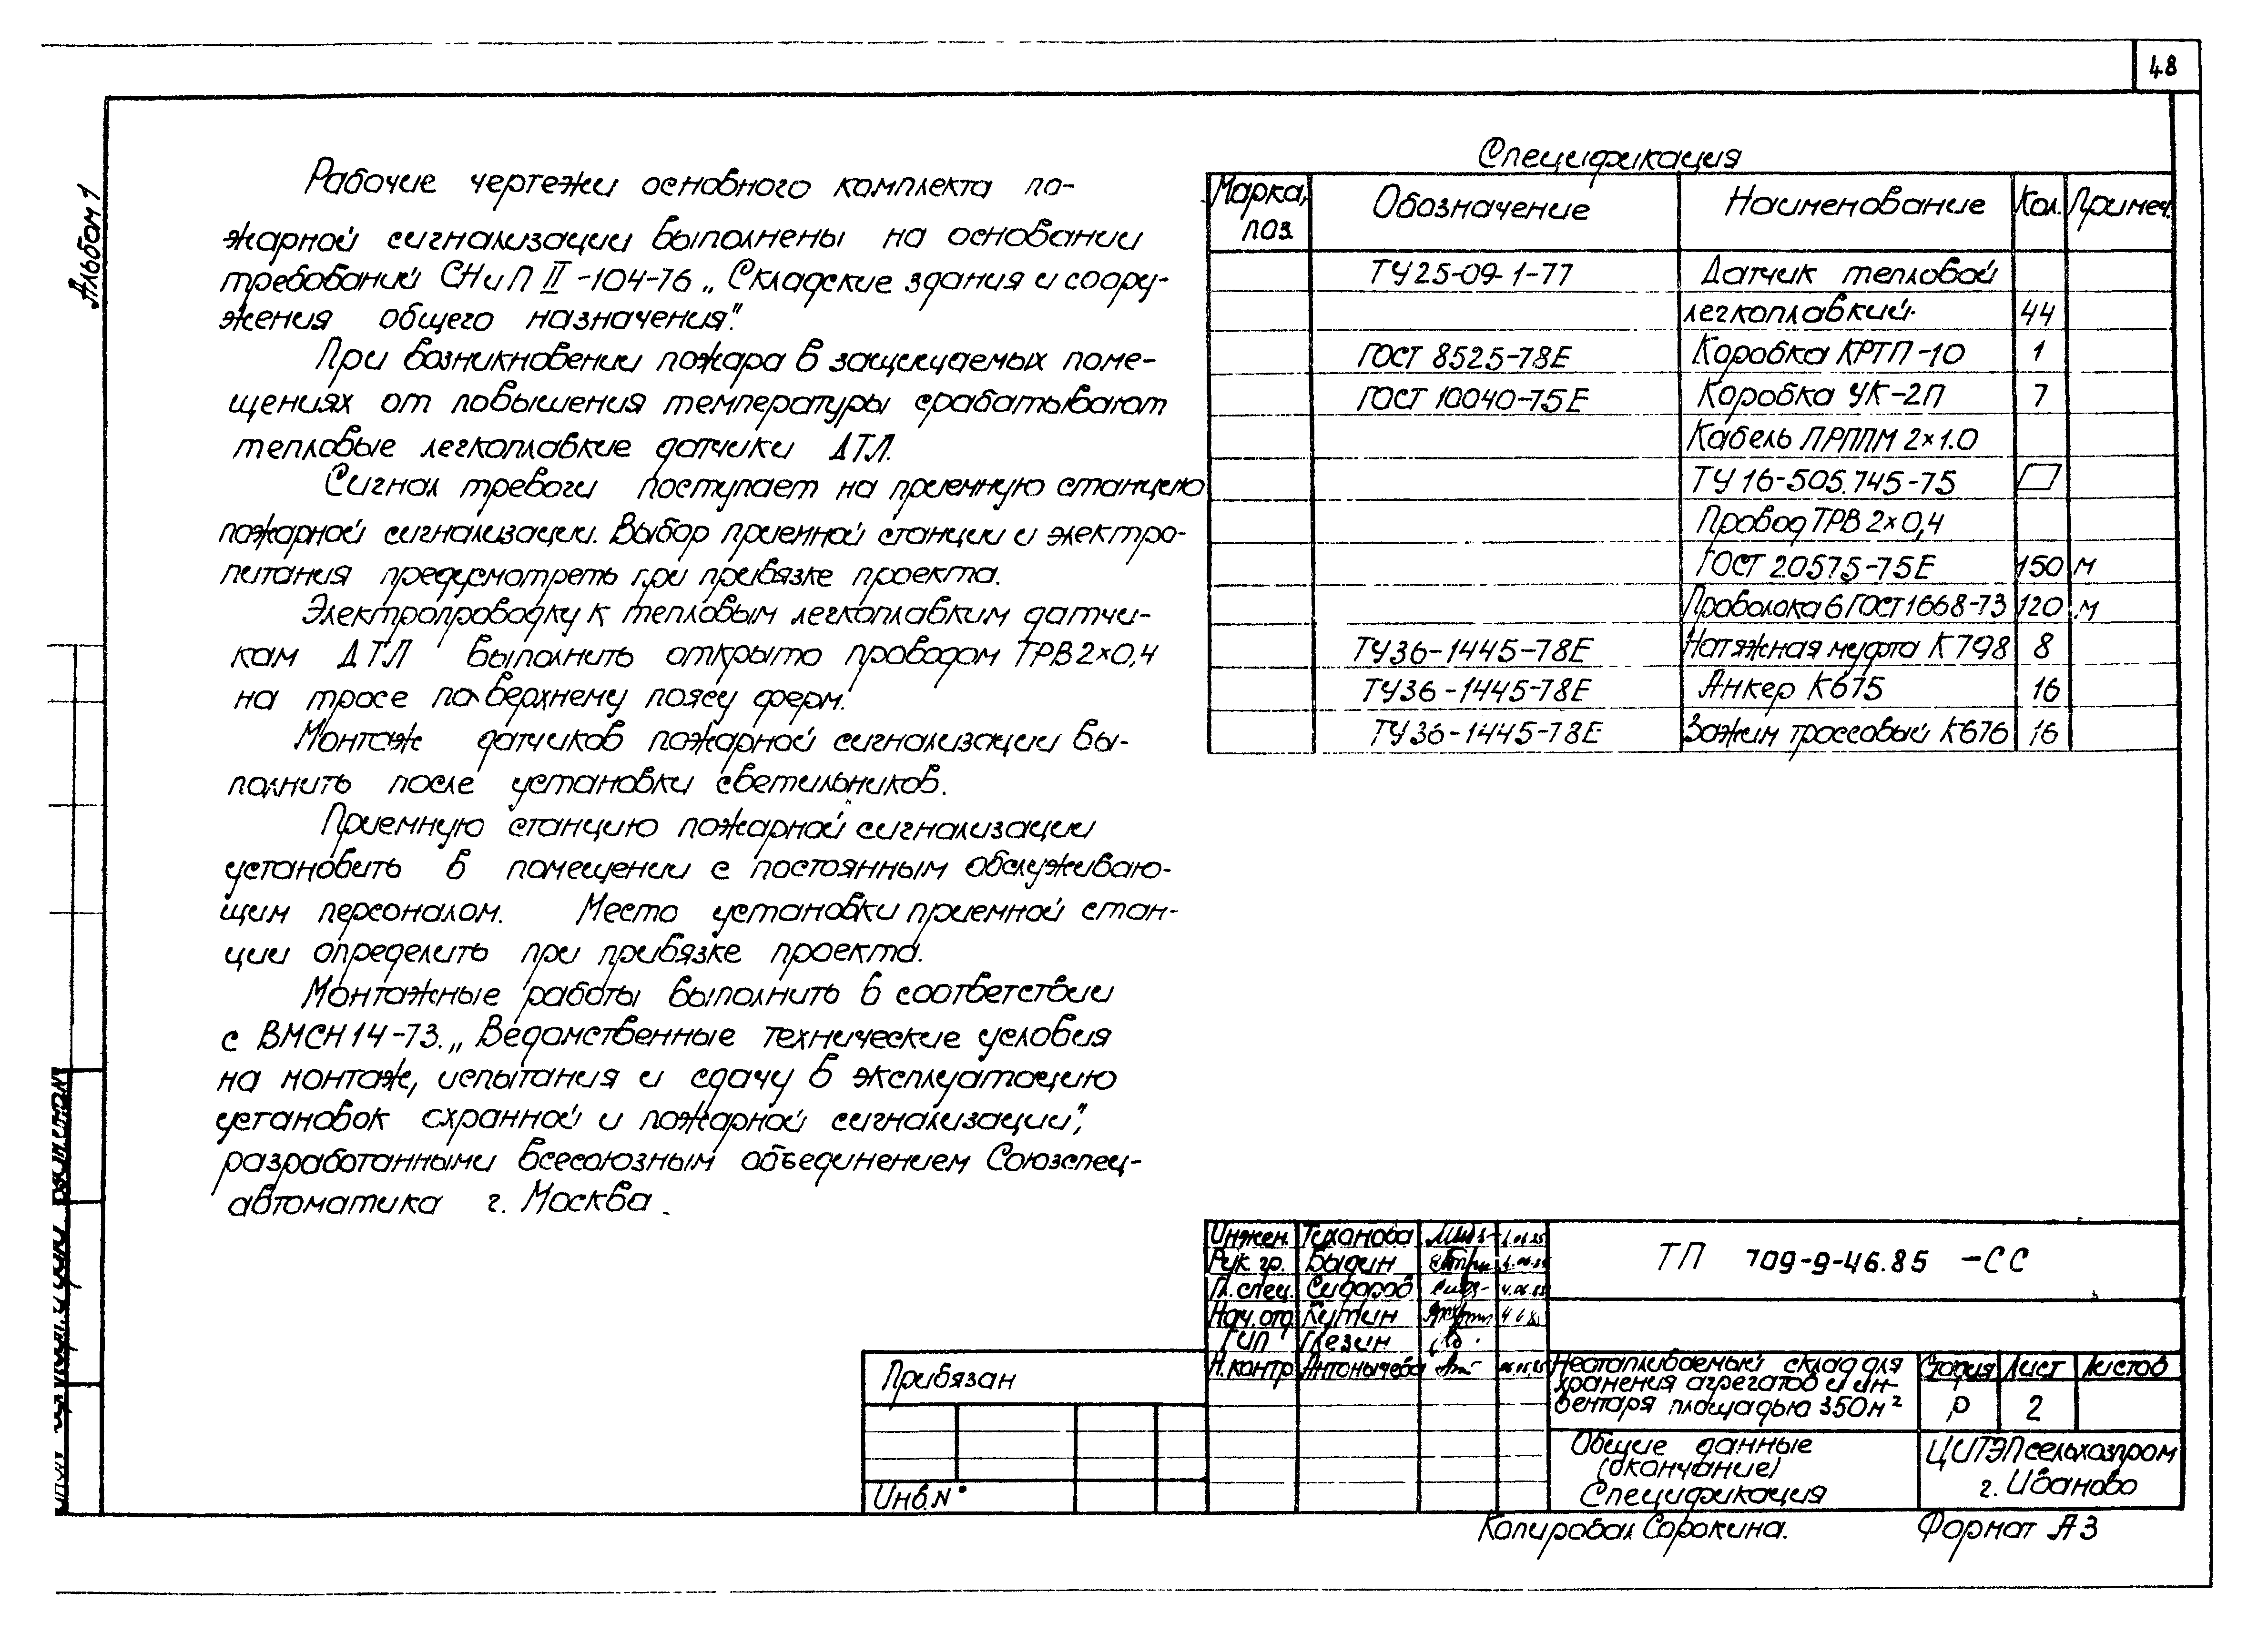 48
Альбом 1
Рабочие чертежи основного комплекта по-
жарной сигнализации выполнены на основании
требований СНиП II-104-76 „Складские здания и соору-
жения общего назначения".
При возникновении пожара в защищаемых поме-
щениях от повышения температуры срабатывают
тепловые легкоплавкие датчики ДТЛ.
Сигнал тревоги поступает на приемную станцию
пожарной сигнализации. Выбор приемной станции и электро-
питания предусмотреть при привязке проекта.
Электропроводку к тепловым легкоплавким датчи-
кам ДТЛ выполнить открыто проводом ТРВ 2×0,4
на тросе по верхнему поясу ферм.
Монтаж датчиков пожарной сигнализации вы-
полнить после установки светильников.
Приемную станцию пожарной сигнализации
установить в помещении с постоянным обслуживаю-
щим персоналом. Место установки приемной стан-
ции определить при привязке проекта.
Монтажные работы выполнить в соответствии
с ВМСН 14-73. „Ведомственные технические условия
на монтаж, испытания и сдачу в эксплуатацию
установок охранной и пожарной сигнализации",
разработанными всесоюзным объединением Союзспец-
автоматика г. Москва.
Спецификация
Марка, поз. Обозначение Наименование Кол. Примеч.
ТУ 25-09-1-77 Датчик тепловой
легкоплавкий 44
ГОСТ 8525-78Е Коробка КРТП-10 1
ГОСТ 10040-75Е Коробка УК-2П 7
Кабель ПРППМ 2×1.0
ТУ 16-505.745-75
Провод ТРВ 2×0,4
ГОСТ 20575-75Е 150 м
Проволока 6 ГОСТ 1668-73 120 м
ТУ36-1445-78Е Натяжная муфта К798 8
ТУ36-1445-78Е Анкер К675 16
ТУ36-1445-78Е Зажим троссовый К676 16
Инжен. Теханова
Рук. гр. Быдин
Гл. спец. Сидоров 4.06.85
Нач. отд. Кутин
ГИП Глезин
Н. контр. Антонычева
ТП 709-9-46.85 -СС
Неотапливаемый склад для
хранения агрегатов и ин-
вентаря площадью 350 м²
Стадия Лист Листов
Р 2
Общие данные
(окончание)
Спецификация
ЦИТЭПсельхозпром
г. Иваново
Привязан
Инв. №
Копировал Сорокина. Формат А3